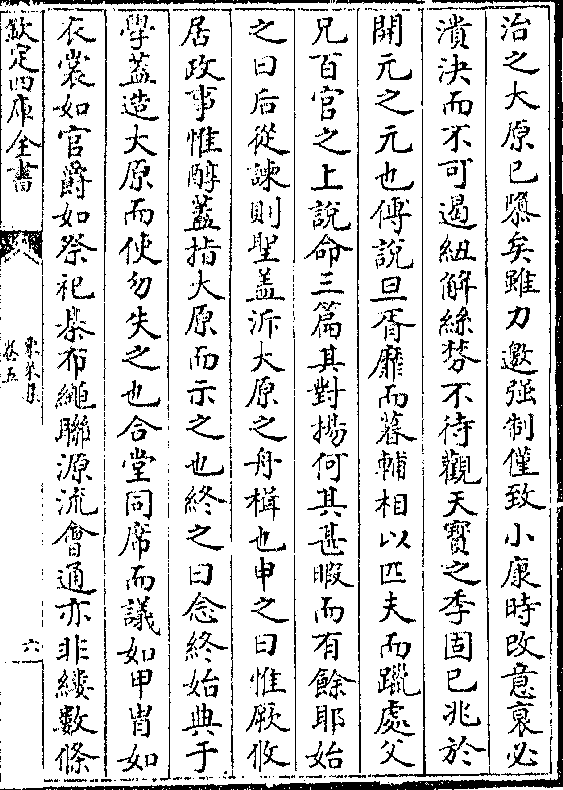 治之大原已隳矣雖力邀强制僅致小康時改意衰必
潰決而不可遏紐解絲棼不待觀天寳之季固已兆於
開元之元也傅說旦胥靡而暮輔相以匹夫而躐處父
兄百官之上說命三篇其對揚何其甚暇而有餘耶始
之曰后從諫則聖盖泝大原之舟楫也申之曰惟厥攸
居政事惟醇盖指大原而示之也終之曰念終始典于
學蓋造大原而使勿失之也合堂同席而議如甲胄如
衣裳如官爵如祭祀棊布繩聯源流會通亦非縷數條
欽定四庫全書
東萊集
卷五
六